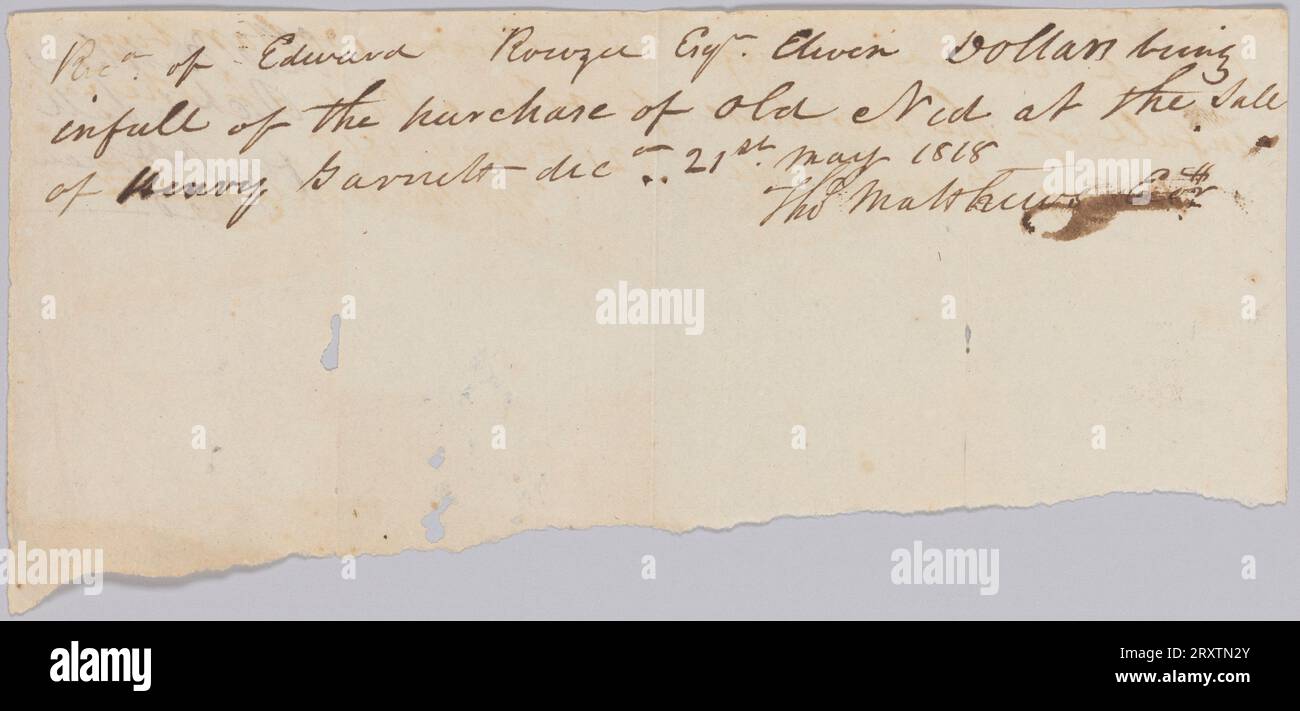 Recd. of Edward Rowzee Esqr. Eleven Dollars being
infull of the purchase of Old Ned at the Sale
of Henry Garnett decd. 21st. May 1818
Thos Matthews Exr
alamy
alamy
www.alamy.com
Image ID: 2RXTN2Y